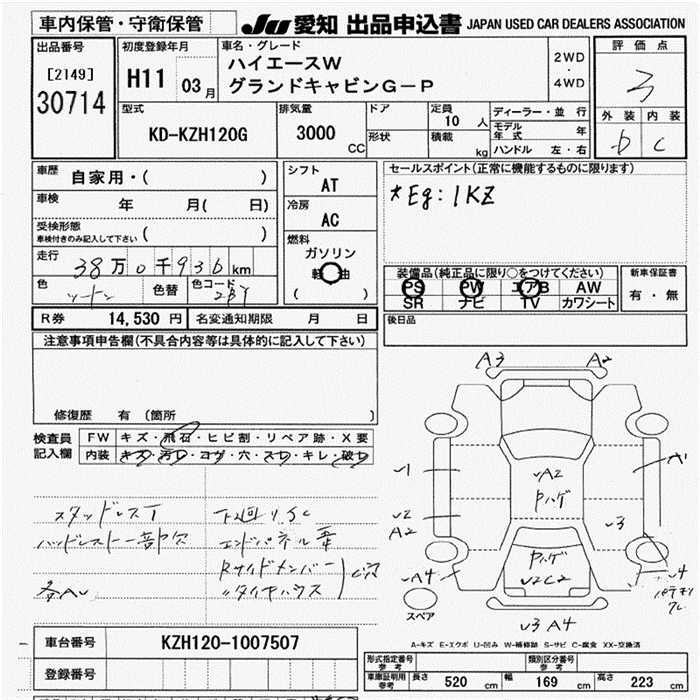 車内保管・守衛保管 JU 愛知 出品申込書 JAPAN USED CAR DEALERS ASSOCIATION
出品番号
[2149]
30714
初度登録年月
H11 03月
車名・グレード
ハイエースW
グランドキャビンG－P
2WD
・
4WD
評価点
3
外装 内装
D C
型式
KD-KZH120G
排気量
3000
CC
ドア
形状
定員
10 人
積載
kg
ディーラー・並行
モデル年式 年
ハンドル 左・右
車歴 自家用・( )
車検 年 月( 日)
受検形態
車検付きのみ記入して下さい ( )
走行 38万0千936km
色 ツートン 色替 色コード 2BY
シフト
AT
冷房
AC
燃料
ガソリン
軽油
( )
セールスポイント(正常に機能するものに限ります)
*Eg:1KZ
装備品(純正品に限り○をつけてください)
PS PW エアB AW
SR ナビ TV カワシート
新車保証書
有・無
R券 14,530 円 名変通知期限 月 日
後日品
注意事項申告欄(不具合内容等は具体的に記入して下さい)
修復歴 有 〔箇所 〕
検査員
記入欄
FW キズ・飛石・ヒビ割・リペア跡・X要
内装 キズ・汚レ・コゲ・穴・スレ・キレ・破レ
スタッドレスT
ヘッドレスト一部欠
各AU
下廻りSC
エンドパネル
Rサイドメンバー
〃タイヤハウス
C穴
A3 A2
U1 A1
UA2
Pハゲ
U2
A2
U3
Pハゲ
U2C2
UA4
U4
スペア
U3 A4
A-キズ E-エクボ U-凹み W-補修跡 S-サビ C-腐食 XX-交換済
車台番号 KZH120-1007507
登録番号
形式指定番号
参考
類別区分番号
参考
車庫証明用
参考
長さ 520 cm 幅 169 cm 高さ 223 cm